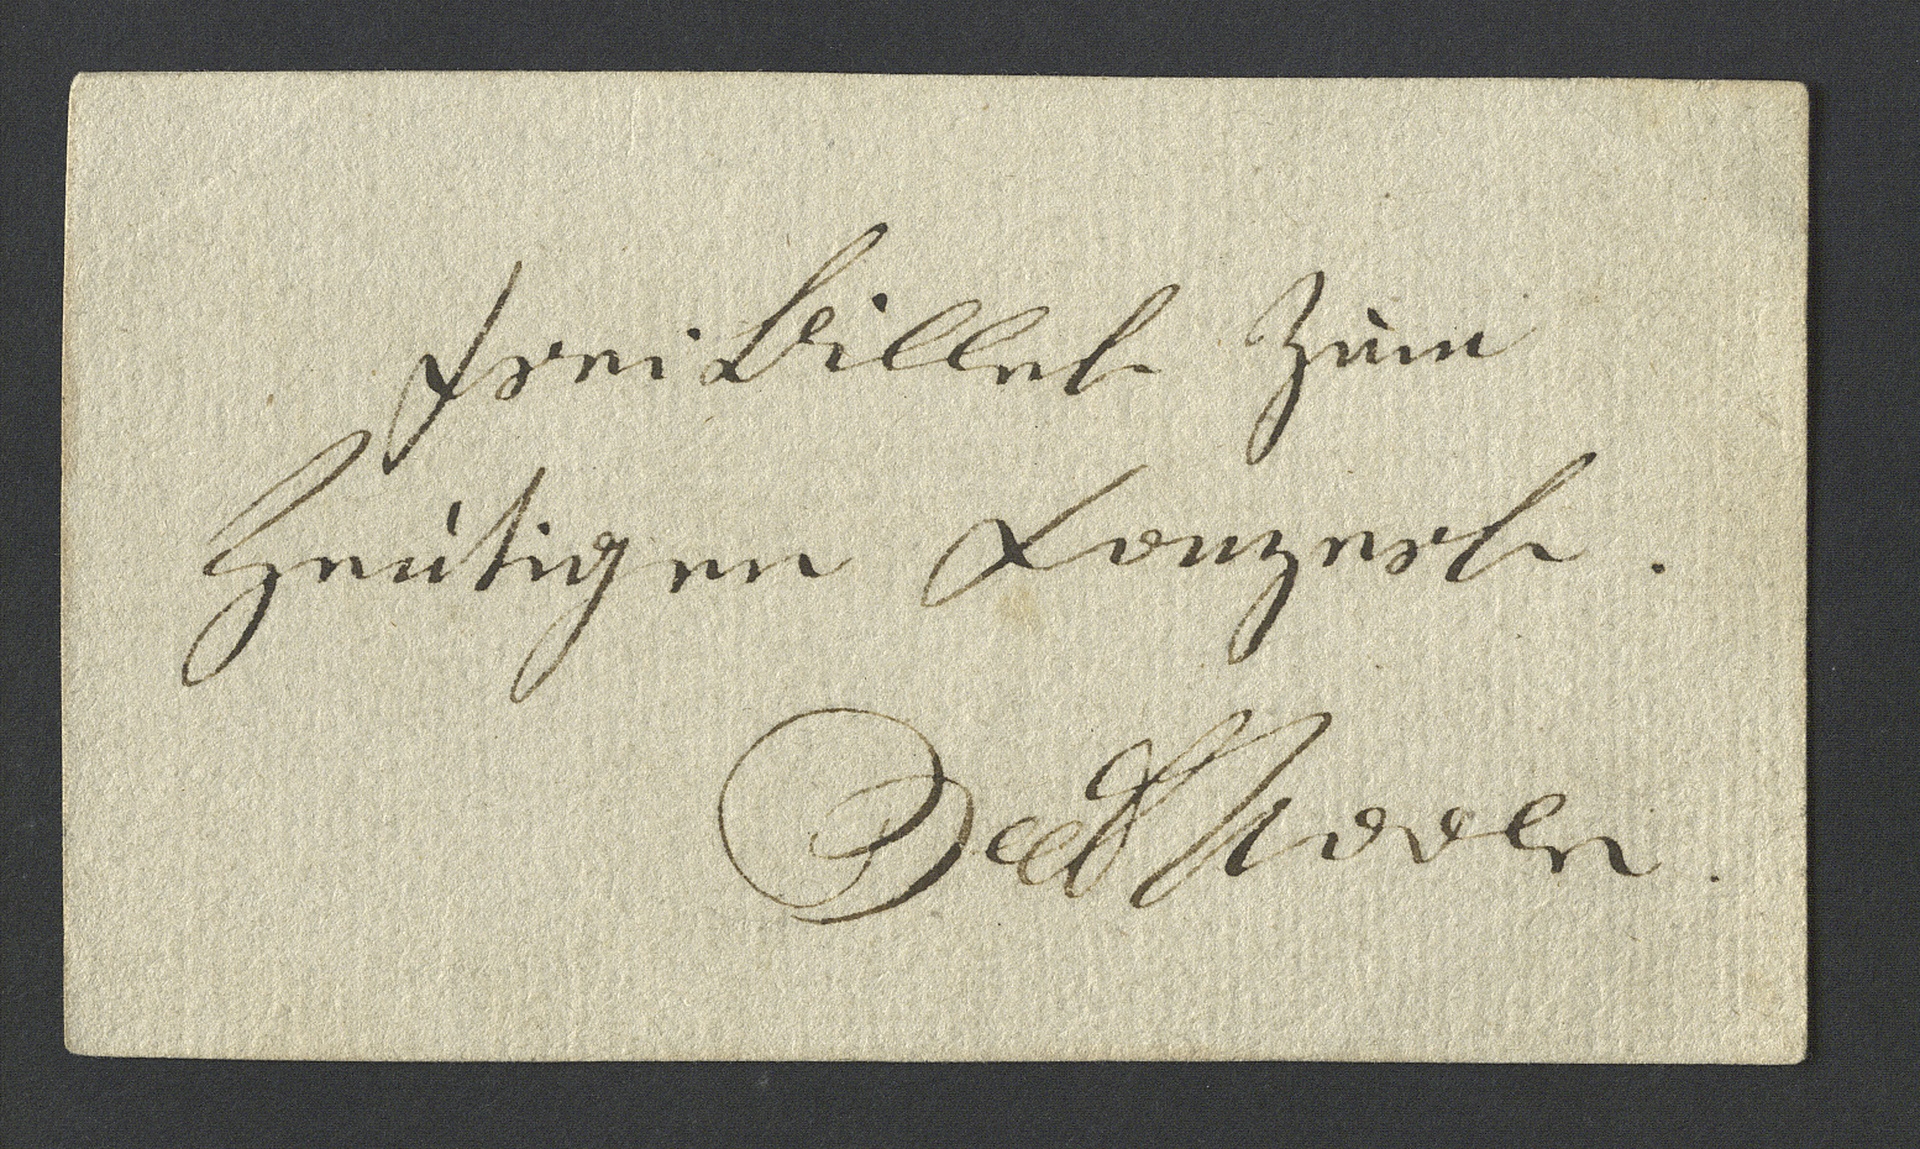 freiBillet zum
heutigen Konzert.